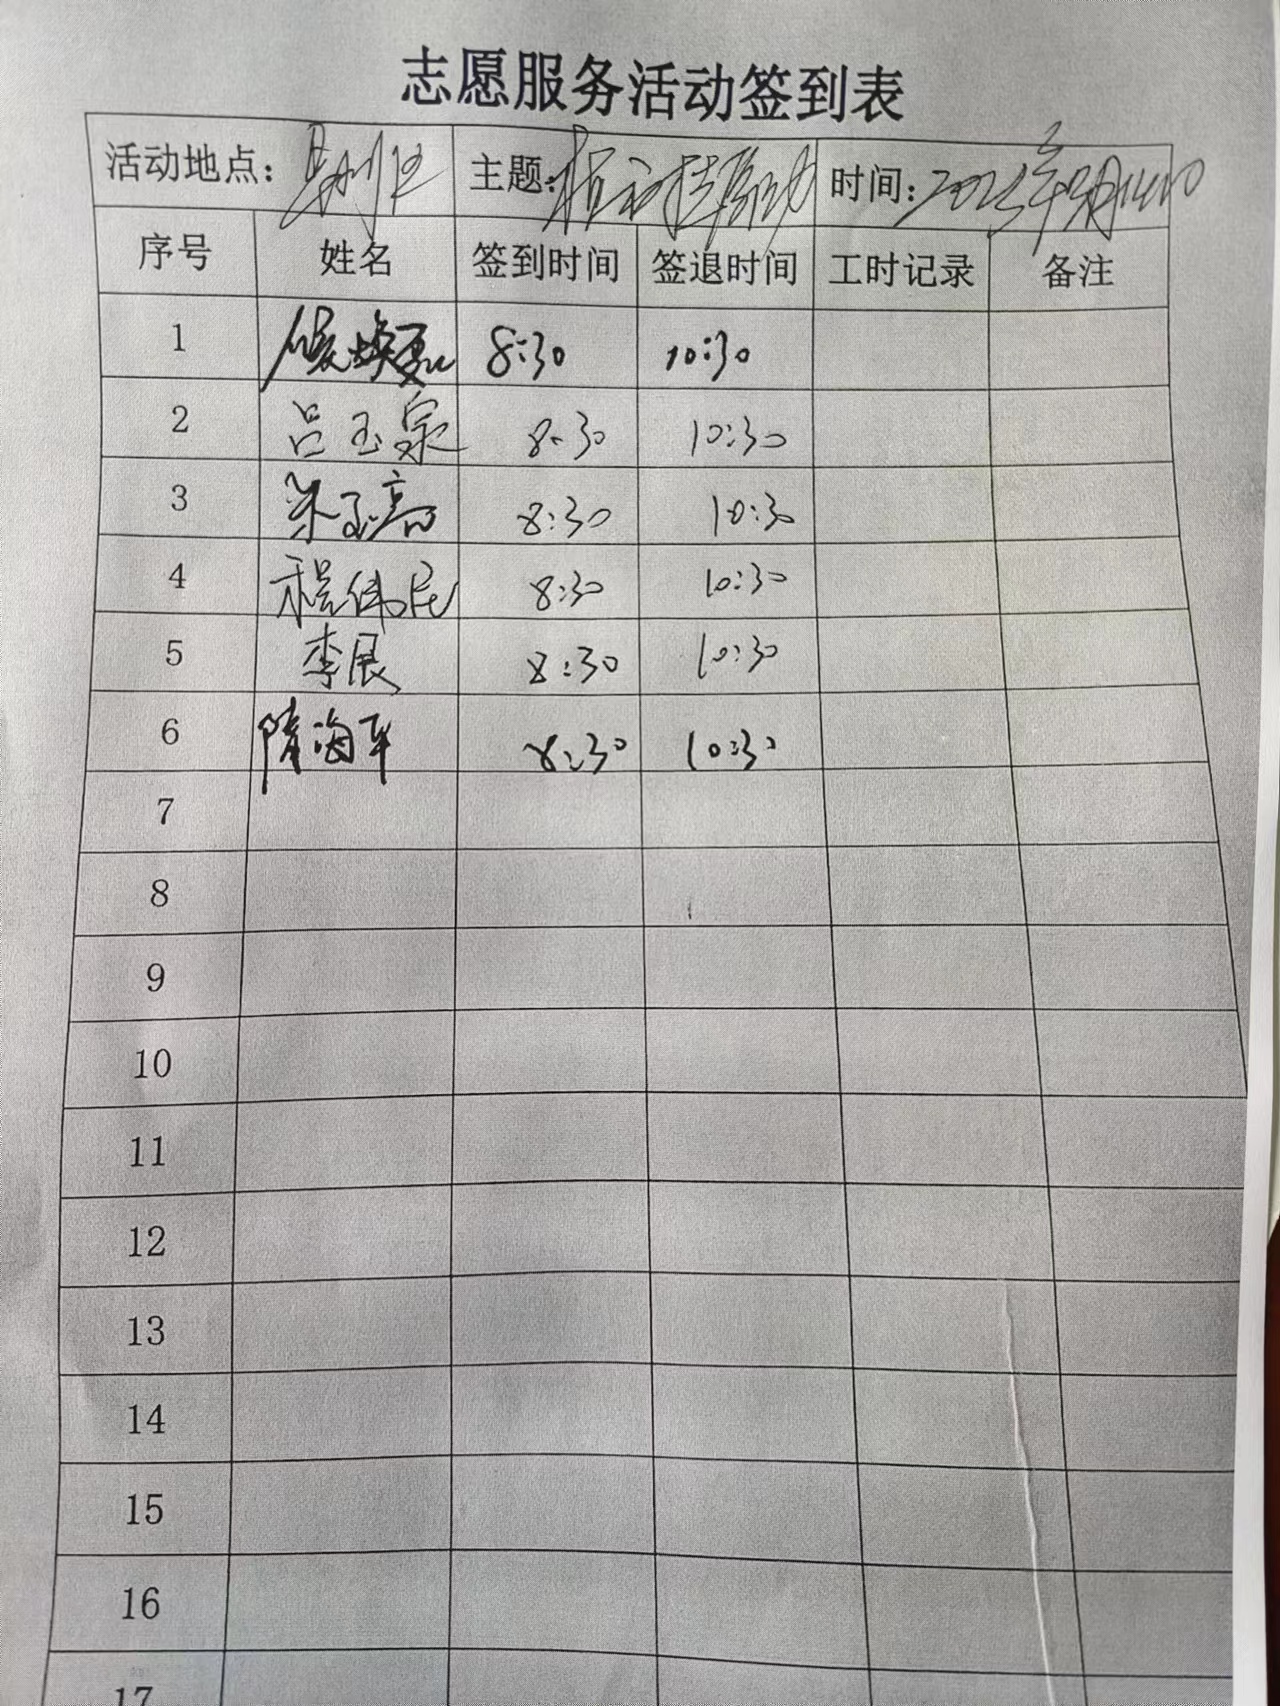 志愿服务活动签到表
活动地点: 主题: 时间:
序号 姓名 签到时间 签退时间 工时记录 备注
1 8:30 10:30
2 吕玉泉 8:30 10:30
3 朱玉高 8:30 10:30
4 程伟民 8:30 10:30
5 李展 8:30 10:30
6 隋海军 8:30 10:30
7
8
9
10
11
12
13
14
15
16
17